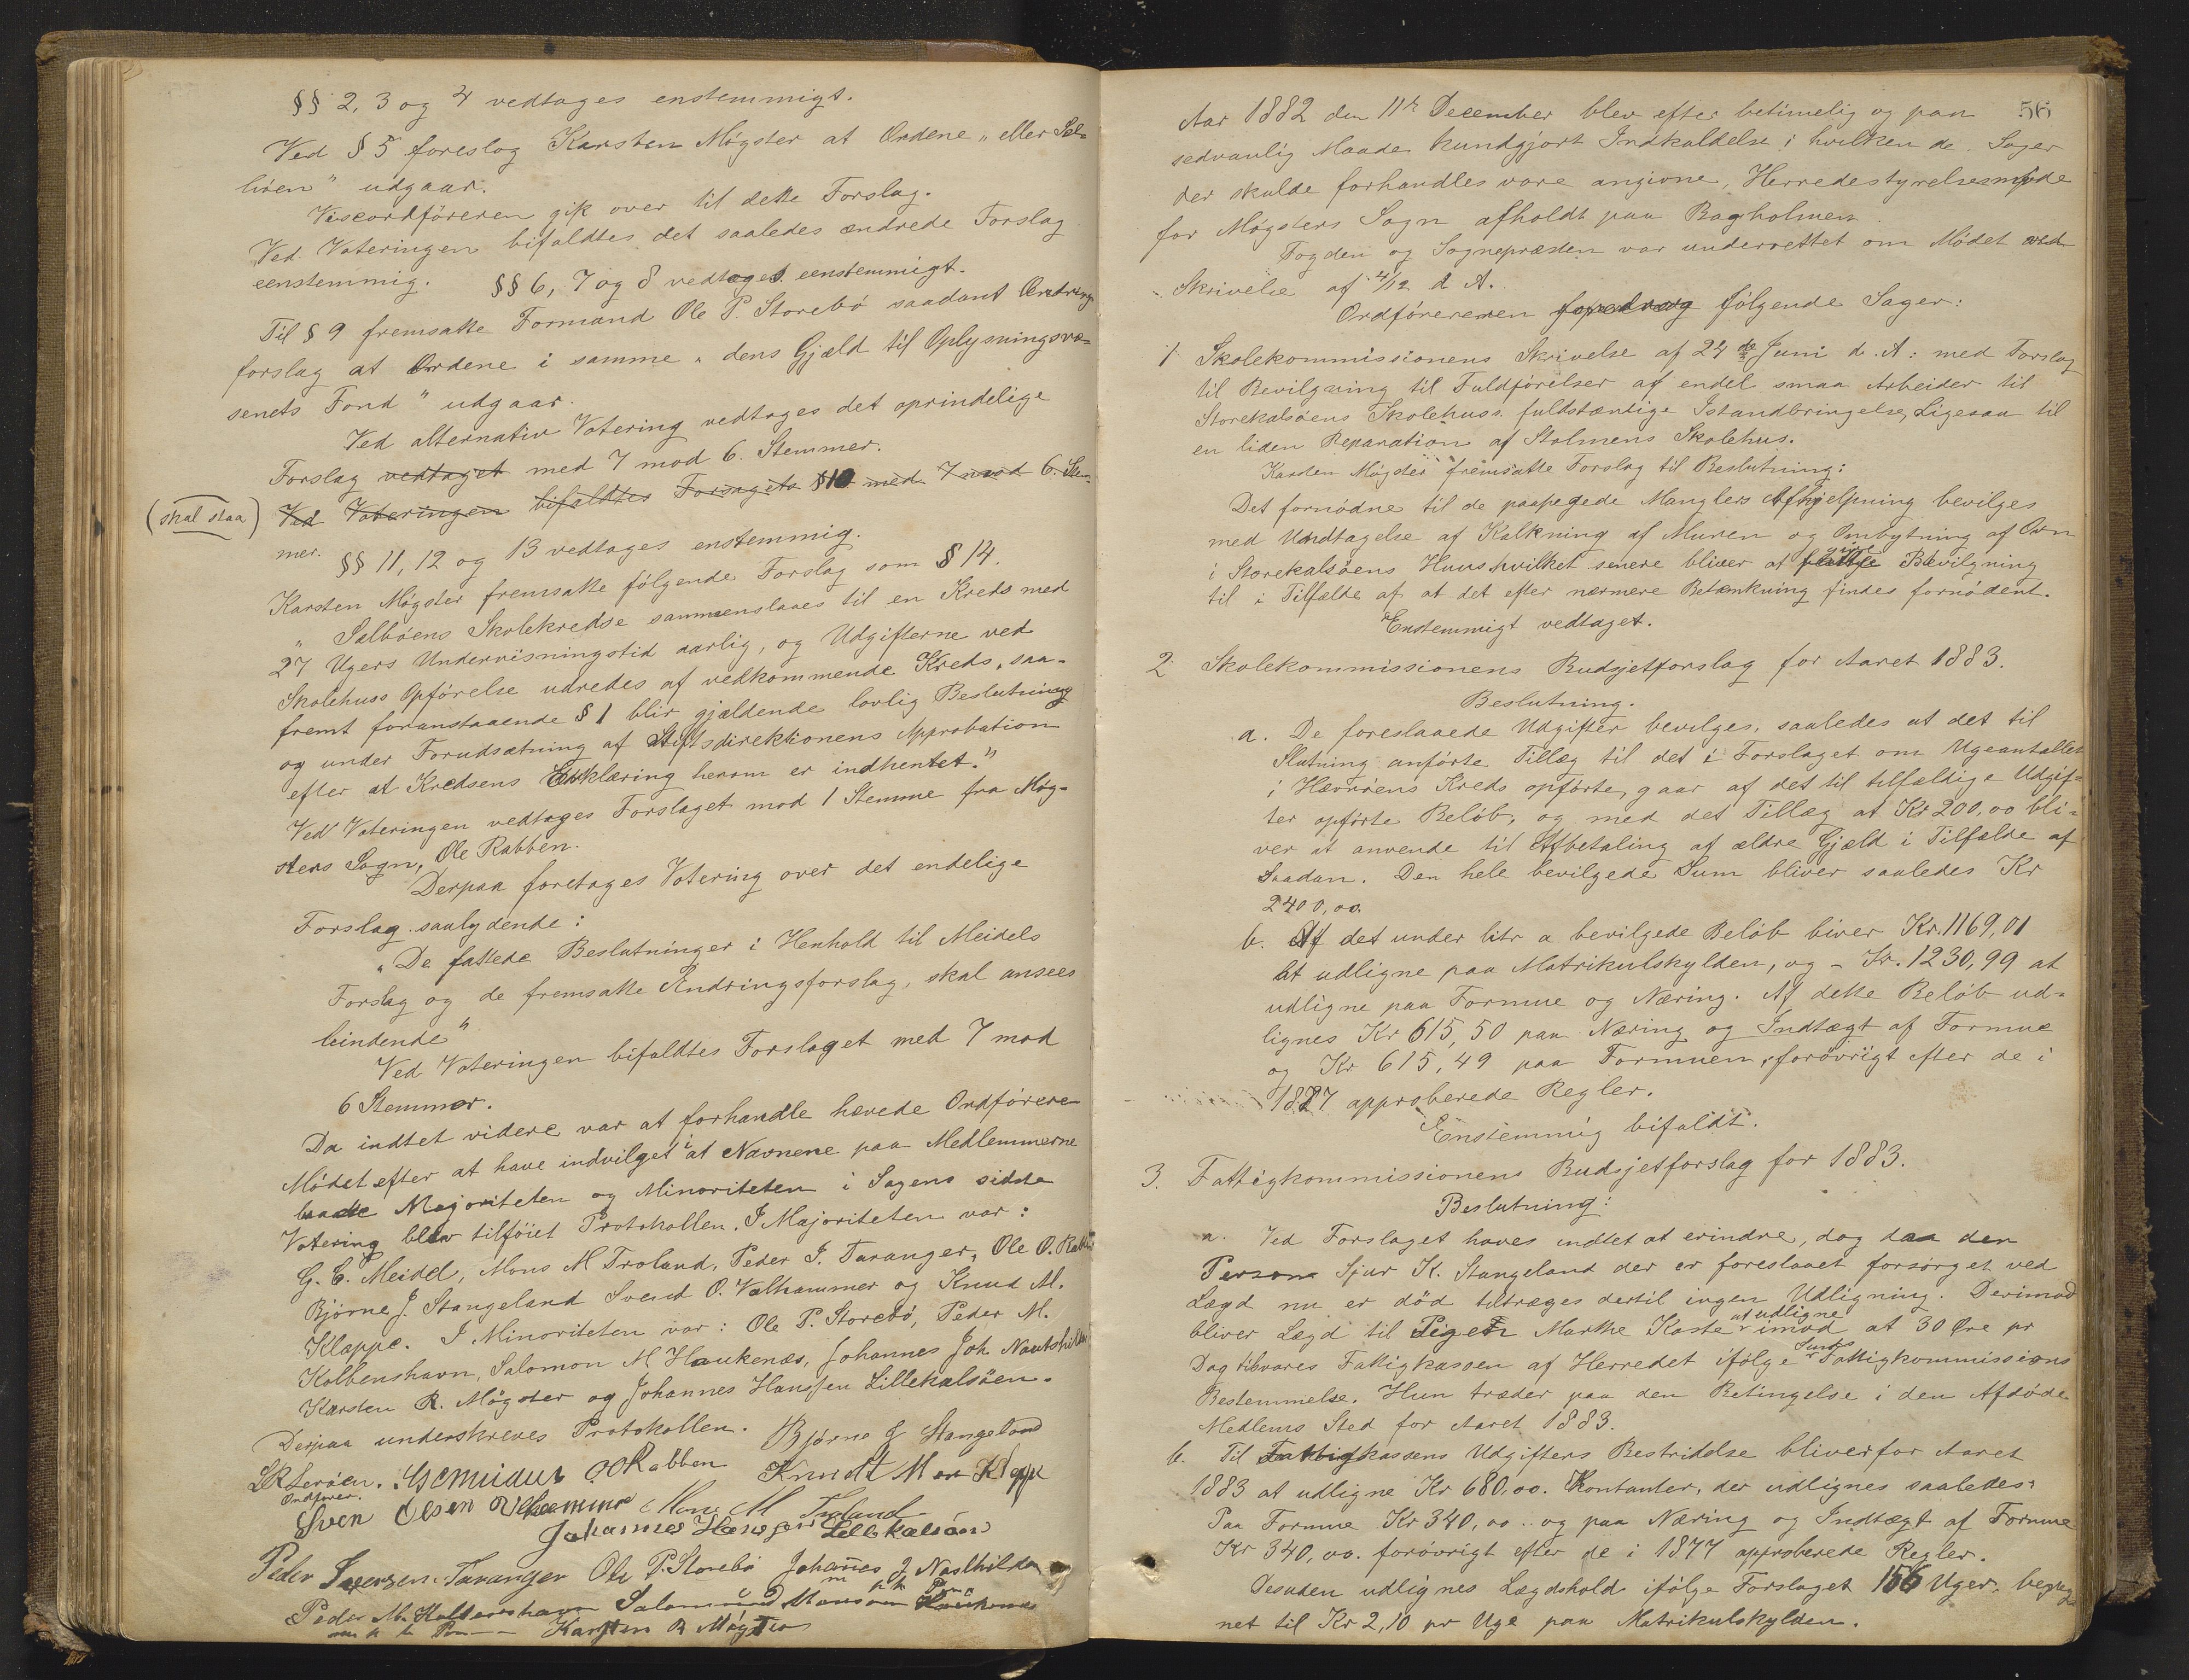 §§ 2, 3 og 4 vedtages enstemmigt.
Ved § 5 foreslog Karsten Møgster at Ordene „eller Sel-
bøen" udgaar.
Viseordføreren gik over til dette Forslag.
Ved Voteringen bifaldtes det saaledes ændrede Forslag
eenstemmig. §§ 6, 7 og 8 vedtaget eenstemmigt.
Til § 9 fremsatte Formand Ole P. Storebø saadant Ændrings
forslag at Ordene i samme „dens Gjæld til Oplysningsvæ-
senets Fond" udgaar.
Ved alternativ Votering vedtages det oprindelige
Forslag vedtaget med 7 mod 6 Stemmer.
(skal staa) Ved Voteringen bifaldtes Forsagets §10 med 7 mod 6. Stem-
mer. §§ 11, 12 og 13 vedtages enstemmig.
Karsten Møgster fremsatte følgende Forslag som § 14.
„Selbøens Skolekredse sammenslaaes til en Kreds med
27 Ugers Undervisningstid aarlig, og Udgifterne ved
Skolehuss Opførelse udredes af vedkommende Kreds, saa-
fremt foranstaaende § 1 blir gjældende lovlig Beslutning
og under Forudsætning af Stiftsdirektionens Approbation
efter at Kredsens Erklæring herom er indhentet."
Ved Voteringen vedtages Forslaget mod 1 Stemme fra Møg-
sters Sogn, Ole Rabben.
Derpaa foretages Votering over det endelige
Forslag saalydende:
„De fattede Beslutninger i Henhold til Meidels
Forslag og de fremsatte Ændringsforslag, skal ansees
bindende"
Ved Voteringen bifaldtes Forslaget med 7 mod
6 Stemmer.
Da indtet videre var at forhandle hævede Ordføreren
Mødet efter at have indvilget i at Navnene paa Medlemmerne
baade Majoriteten og Minoriteten i Sagens sidste
Votering blev tilføiet Protokollen. I Majoriteten var:
G. C. Meidel, Mons M Troland, Peder I. Taranger, Ole O. Rabben
Bjørne J. Stangeland Svend O. Valhammer og Knud M.
Klappe. I Minoriteten var: Ole P. Storebø, Peder M.
Kolbenshavn, Salomon M Haukenæs, Johannes Joh
Karsten R. Møgster og Johannes Hanssen Lillekalsøen.
Derpaa underskreves Protokollen. Bjørne J Stangeland
L R Lerøen. O O Rabben Knudt M Klappe
Ordfører.
Sven Olsen Mons M Troland
Johannes Hansen Lillekalsøen
Peder Iversen Taranger Ole P. Storebø Johannes J
Peder M. Kolbenshavn Salomond Monsen Haukenæs
Karsten R Møgster
56
Aar 1882 den 11te December blev efter betimelig og paa
sedvanlig Maade kundgjort Indkaldelse i hvilken de Sager
der skulde forhandles vare angivne, Herredestyrelsesmøde
for Møgsters Sogn afholdt paa Bagholmen.
Fogden og Sognepræsten var underrettet om Mødet ved
Skrivelse af 4/12 d. A.
Ordføreren foredrog følgende Sager:
1 Skolekommissionens Skrivelse af 24de Juni d. A: med Forslag
til Bevilgning til Fuldførelser af endel smaa Arbeider til
Storekalsøens Skolehuss fuldstændige Istandbringelse, Ligesaa til
en liden Reparation af Stolmens Skolehus.
Karsten Møgster fremsatte Forslag til Beslutning:
Det fornødne til de paapegede Manglers Afhjelpning bevilges
med Undtagelse af Kalkning af Muren og Ombytning af Ovn
i Storekalsøens Huus hvilket senere bliver at give Bevilgning
til i Tilfælde af at det efter nærmere Betænkning findes fornødent.
Enstemmigt vedtaget.
2 Skolekommissionens Budsjetforslag for Aaret 1883.
Beslutning.
a. De foreslaaede Udgifter bevilges, saaledes at det til
Slutning anførte Tillæg til det i Forslaget om Ugeantallet
i Hævrøens Kreds opførte, gaar af det til tilfældige Udgif-
ter opførte Beløb, og med det Tillæg at Kr 200,00 bli-
ver at anvende til Afbetaling af ældre Gjæld i Tilfælde af
Saadan. Den hele bevilgede Sum bliver saaledes Kr
2400,00.
b. Af det under litr a bevilgede Beløb biver Kr. 1169,01
at udligne paa Matrikulskylden, og - Kr. 1230,99 at
udligne paa Formue og Næring. Af dette Beløb ud-
lignes Kr 615,50 paa Næring og Indtægt af Formue
og Kr 615,49 paa Formuen, forøvrigt efter de i
1877 approberede Regler.
Enstemmig bifaldt.
3. Fattigkommissionens Budsjetforslag for 1883.
Beslutning:
a. Ved Forslaget haves indtet at erindre, dog daa den
Person Sjur K. Stangeland der er foreslaaet forsørget ved
Lægd nu er død tiltræges dertil ingen Udligning. Derimod
bliver Lægd til Pigen Marthe Kaste at udligne imod at 30 Øre pr
Dag tilsvares Fattigkassen af Herredet ifølge Sunds Fattigkommissions
Bestemmelse. Hun træder paa den Betingelse i den Afdøde
Medlems Sted for Aaret 1883.
b. Til Fattigkassens Udgifters Bestridelse bliver for Aaret
1883 at udligne Kr 680,00. Kontanter, der udlignes saaledes:
Paa Formue Kr 340,00 .. og paa Næring og Indtægt af Formue
Kr 340,00. forøvrigt efter de i 1877 approberede Regler.
Desuden udlignes Lægdshold ifølge Forslaget 156 Uger, bereg-
net til Kr 2,10 pr Uge paa Matrikulskylden.